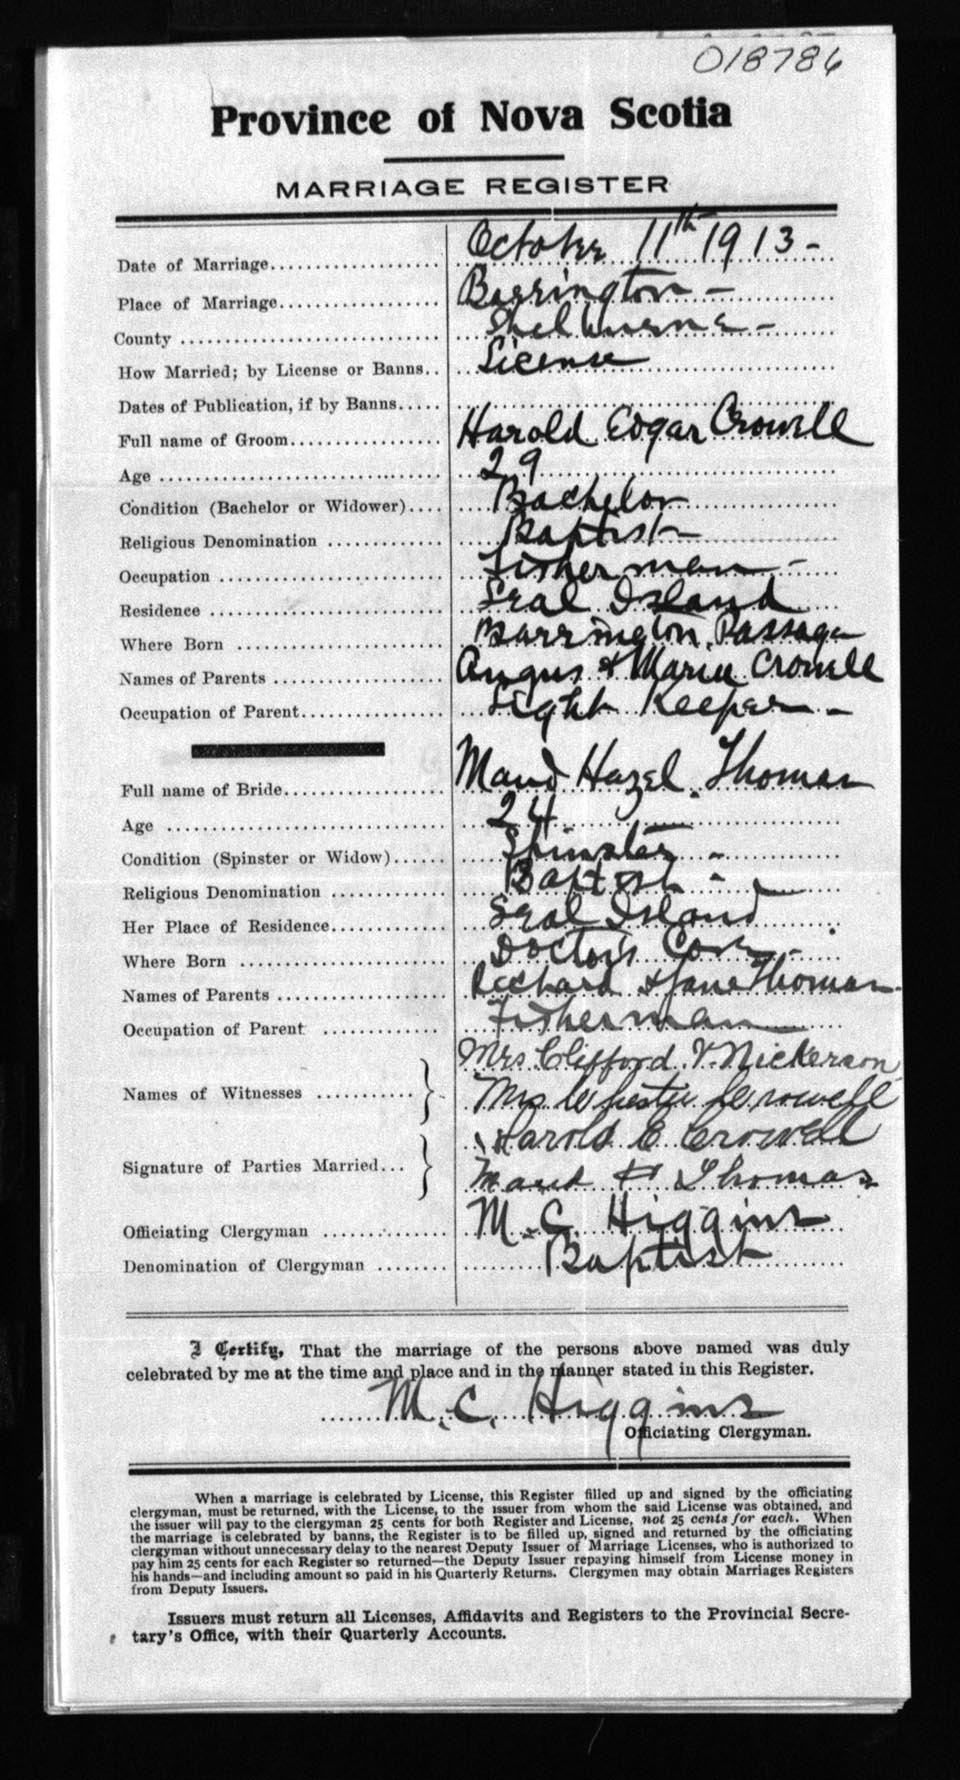 018786
Province of Nova Scotia
MARRIAGE REGISTER
Date of Marriage................... October 11th 1913-
Place of Marriage.................. Barrington -
County ............................ Shelburne -
How Married; by License or Banns.. License
Dates of Publication, if by Banns.....
Full name of Groom................. Harold Edgar Crowell
Age ............................... 29
Condition (Bachelor or Widower).... Bachelor
Religious Denomination ............ Baptist
Occupation ........................ Fisherman -
Residence ......................... Seal Island
Where Born ........................ Barrington Passage
Names of Parents .................. Angus & Maria Crowell
Occupation of Parent............... Light Keeper -
Full name of Bride................. Maud Hazel Thomas
Age ............................... 24
Condition (Spinster or Widow)...... Spinster -
Religious Denomination ............ Baptist -
Her Place of Residence............. Seal Island
Where Born ........................ Doctors Cove -
Names of Parents .................. Richard & Jane Thomas
Occupation of Parent .............. Fisherman
Mrs Clifford V Nickerson
Names of Witnesses ............
Mrs Crowell
Harold E Crowell
Signature of Parties Married...
Maud H Thomas
Officiating Clergyman ............. M. C. Higgins
Denomination of Clergyman ........ Baptist
I Certify, That the marriage of the persons above named was duly
celebrated by me at the time and place and in the manner stated in this Register.
M. C. Higgins
Officiating Clergyman.
When a marriage is celebrated by License, this Register filled up and signed by the officiating
clergyman, must be returned, with the License, to the issuer from whom the said License was obtained, and
the issuer will pay to the clergyman 25 cents for both Register and License, not 25 cents for each. When
the marriage is celebrated by banns, the Register is to be filled up, signed and returned by the officiating
clergyman without unnecessary delay to the nearest Deputy Issuer of Marriage Licenses, who is authorized to
pay him 25 cents for each Register so returned—the Deputy Issuer repaying himself from License money in
his hands—and including amount so paid in his Quarterly Returns. Clergymen may obtain Marriages Registers
from Deputy Issuers.
Issuers must return all Licenses, Affidavits and Registers to the Provincial Secre-
tary's Office, with their Quarterly Accounts.